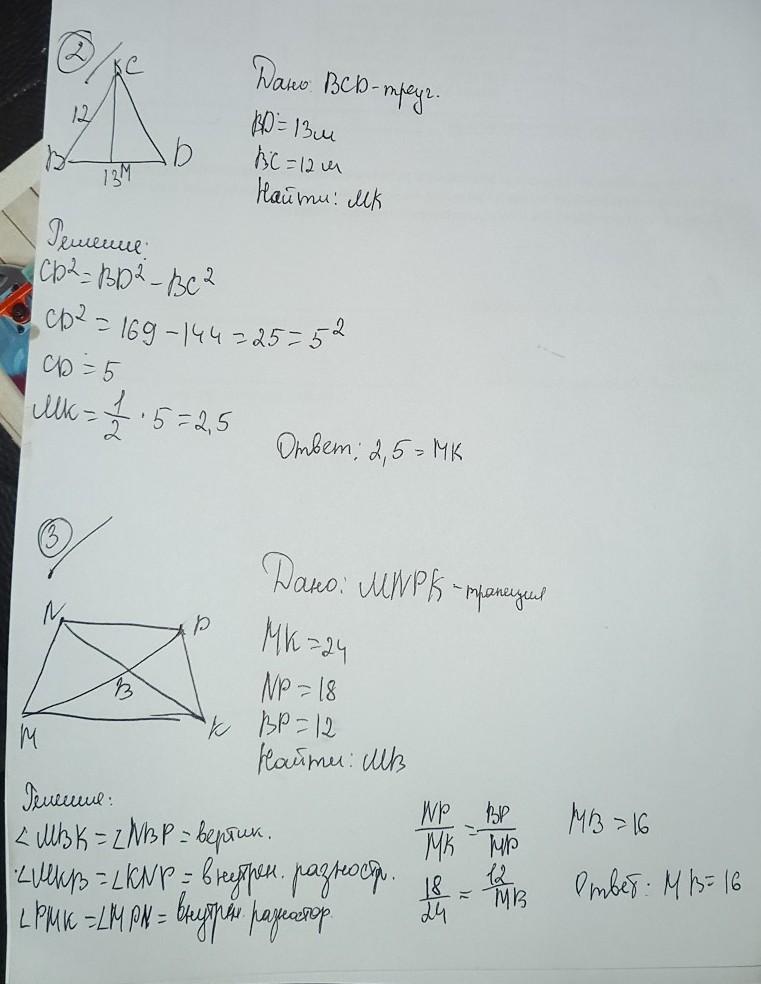 2
C
12
B
D
13
M
Дано: BCD-треуг.
BD=13м
BC=12м
Найти: MK
Решение:
CD²=BD²-BC²
CD²=169-144=25=5²
CD=5
MK=1/2·5=2,5
Ответ: 2,5=MK
3
N
P
B
M
K
Дано: MNPK-трапеция
MK=24
NP=18
BP=12
Найти: MB
Решение:
∠MBK=∠NBP=вертик.
∠MKB=∠KNP=внутрен. разностр.
∠PMK=∠MPN=внутрен. разностор.
NP/MK=BP/MP
18/24=12/MB
MB=16
Ответ: MB=16